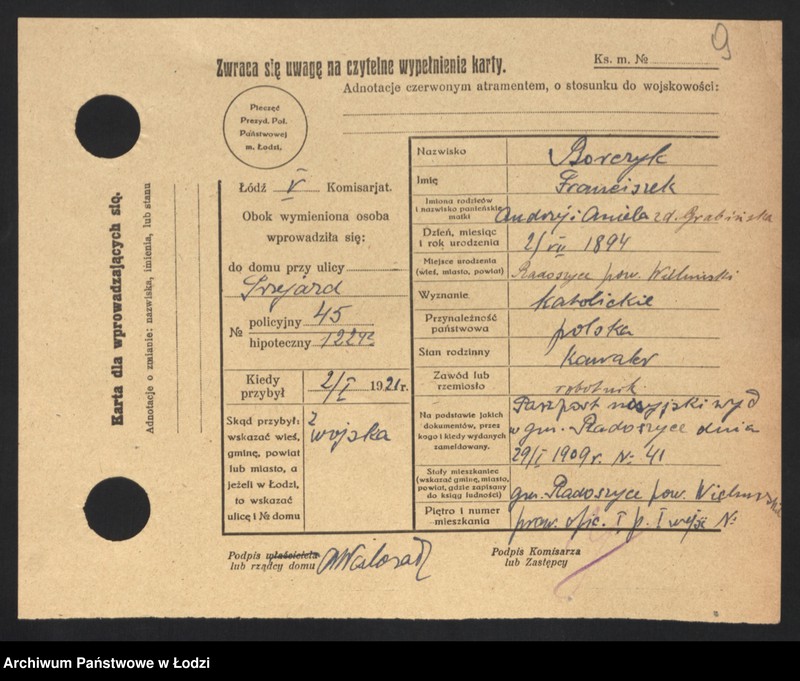 9
Zwraca się uwagę na czytelne wypełnienie karty.
Ks. m. №
Adnotacje czerwonym atramentem, o stosunku do wojskowości:
Pieczęć
Prezyd. Pol.
Państwowej
m. Łodzi.
Karta dla wprowadzających się.
Adnotacje o zmianie: nazwiska, imienia, lub stanu
Łódź V Komisarjat.
Obok wymieniona osoba
wprowadziła się:
do domu przy ulicy
№ policyjny 45
hipoteczny
Kiedy przybył 2/I 1921 r.
Skąd przybył:
wskazać wieś,
gminę, powiat
lub miasto, a
jeżeli w Łodzi,
to wskazać
ulicę i № domu
z
wojska
Nazwisko Borczyk
Imię Franciszek
Imiona rodziców
i nazwisko panieńskie
matki
Andrzej i Aniela z d. Grabińska
Dzień, miesiąc
i rok urodzenia
2/VII 1894
Miejsce urodzenia
(wieś, miasto, powiat)
Radoszyce pow. Wieluński
Wyznanie katolickie
Przynależność
państwowa
polska
Stan rodzinny kawaler
Zawód lub
rzemiosło
robotnik
Na podstawie jakich
dokumentów, przez
kogo i kiedy wydanych
zameldowany.
Paszport rosyjski wyd
w gm. Radoszyce dnia
29/I 1909 r. № 41
Stały mieszkaniec
(wskazać gminę, miasto,
powiat, gdzie zapisany
do ksiąg ludności)
gm. Radoszyce pow. Wieluński
Piętro i numer
mieszkania
praw. ofic. I p. I wejść №
Podpis właściciela
lub rządcy domu
Podpis Komisarza
lub Zastępcy
Archiwum Państwowe w Łodzi